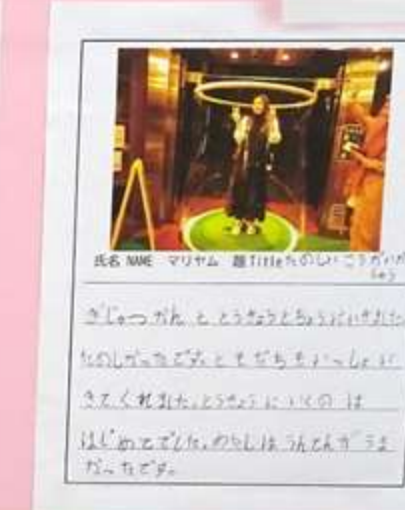 氏名 NAME マリヤム 題Title たのしい こうがいが
しゅう
ぎじゅつかん と とうきょうとちょうにいきました
たのしかったです。ともだちもいっしょに
きてくれました。とうきょうにいくの は
はじめてでした。わたしは うんてんがうま
かったです。